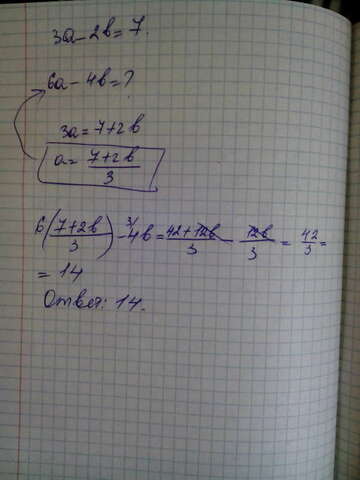 3a - 2b = 7.
6a - 4b = ?
3a = 7 + 2b
a = (7 + 2b)/3
6((7 + 2b)/3) - ³⁄4b = (42 + 12b)/3 - 12b/3 = 42/3 =
= 14
Ответ: 14.